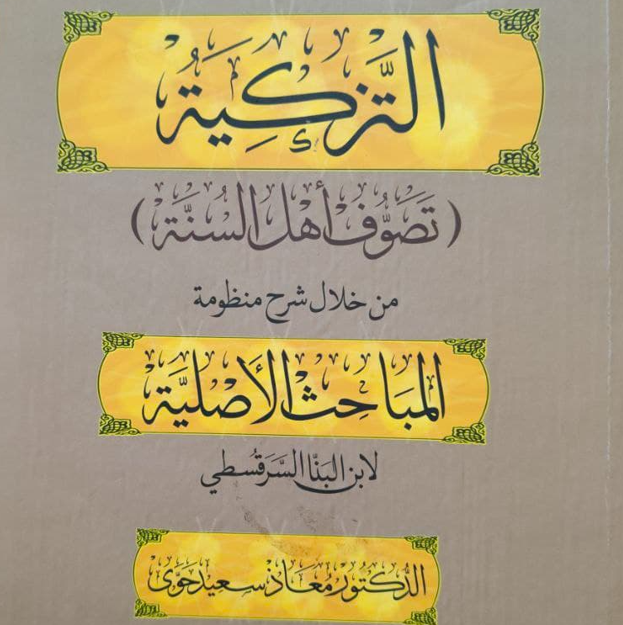 التَّزكِيَةُ
(تَصَوُّف أهل السُنَّة)
من خلال شرح منظومة
المبَاحِث الأَصْليَّة
لابن البَنَّا السَّرَقُسطي
الدُّكتُور مُعَاذ سَعِيد حَوَّى